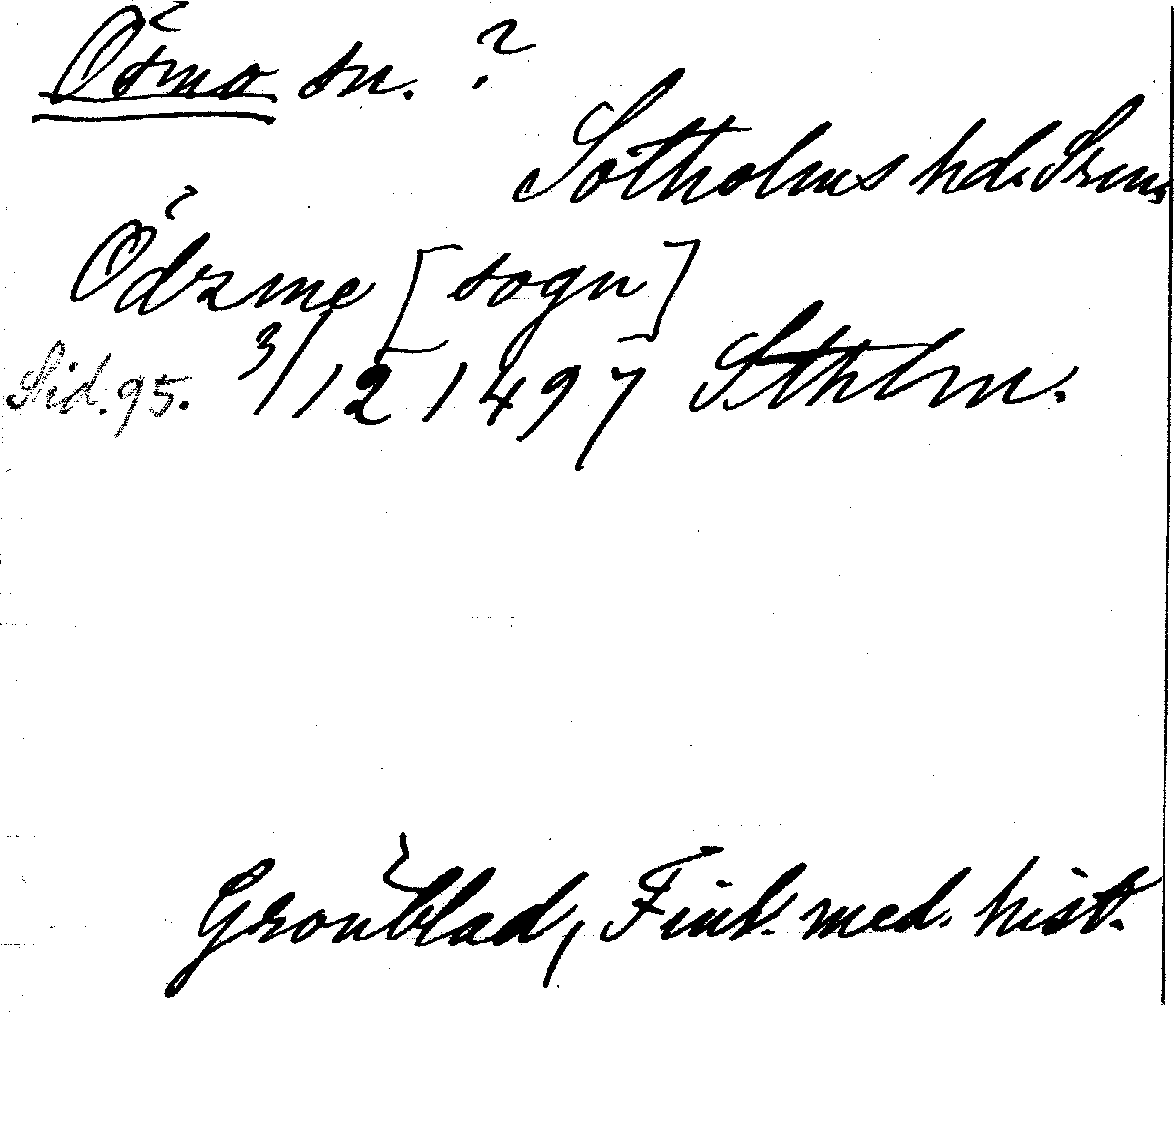 Ösmo sn. ?
Sotholms hd. Srm.
Ödzme [sogn]
Sid. 95. 3/12 1497 Sthlm.
Grönblad, Finl. med. hist.